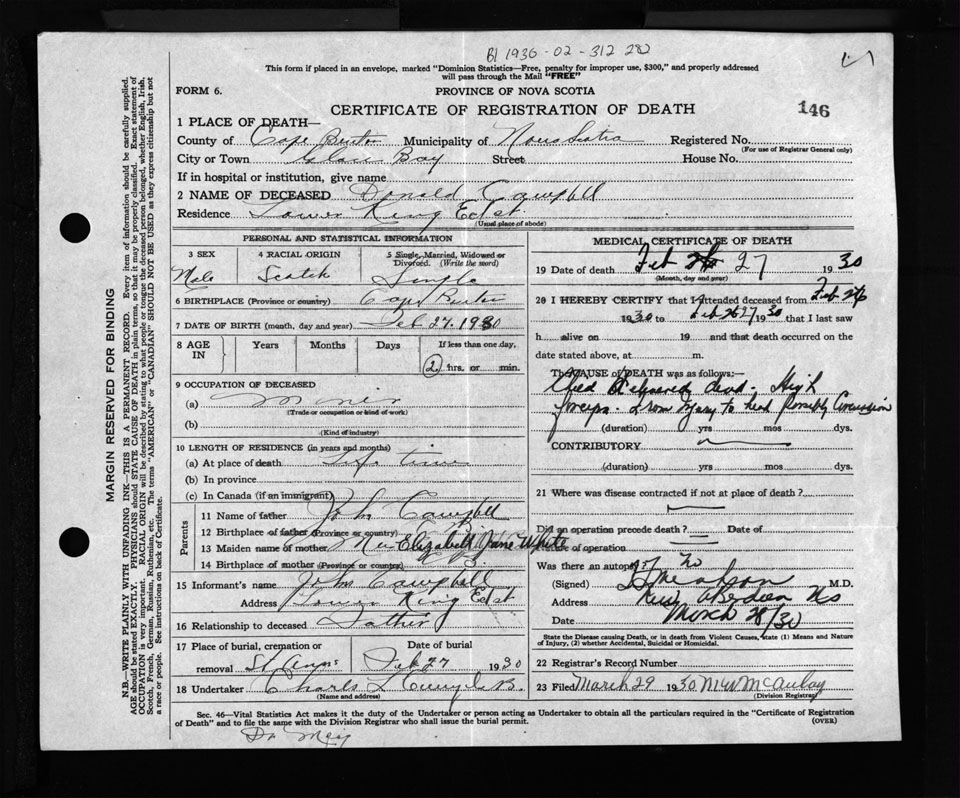 B1 1936-02-312 282
This form if placed in an envelope, marked "Dominion Statistics—Free, penalty for improper use, $300," and properly addressed
will pass through the Mail "FREE"
FORM 6.
PROVINCE OF NOVA SCOTIA
CERTIFICATE OF REGISTRATION OF DEATH
146
1 PLACE OF DEATH—
County of Cape Breton Municipality of Nova Scotia Registered No.
(For use of Registrar General only)
City or Town Glace Bay Street House No.
If in hospital or institution, give name
2 NAME OF DECEASED Donald Campbell
Residence Lower King Ed st.
(Usual place of abode)
PERSONAL AND STATISTICAL INFORMATION
3 SEX
Male
4 RACIAL ORIGIN
Scotch
5 Single, Married, Widowed or Divorced. (Write the word)
Single
6 BIRTHPLACE (Province or country) Cape Breton
7 DATE OF BIRTH (month, day and year) Feb 27. 1930
8 AGE IN
Years Months Days If less than one day,
2 hrs. or min.
9 OCCUPATION OF DECEASED
(a)
(Trade or occupation or kind of work)
(b)
(Kind of industry)
10 LENGTH OF RESIDENCE (in years and months)
(a) At place of death Life time
(b) In province
(c) In Canada (if an immigrant)
Parents
11 Name of father John Campbell
12 Birthplace of father (Province or country)
13 Maiden name of mother Elizabeth Jane White
14 Birthplace of mother (Province or country) C.B.
15 Informant's name John Campbell
Address Lower King Ed st
16 Relationship to deceased Father
17 Place of burial, cremation or removal St Anns
Date of burial
Feb 27 1930
18 Undertaker Charls L
(Name and address)
MEDICAL CERTIFICATE OF DEATH
19 Date of death Feb 27 1930
(Month, day and year)
20 I HEREBY CERTIFY that I attended deceased from Feb 26
1930 to Feb 27 1930 that I last saw
h alive on 19 and that death occurred on the
date stated above, at m.
The CAUSE of DEATH was as follows:—
dead - High
forceps - from injury to head possibly Concussion
(duration) yrs mos dys.
CONTRIBUTORY
(duration) yrs mos dys.
21 Where was disease contracted if not at place of death?
Did an operation precede death? Date of
Nature of operation
Was there an autopsy? No
(Signed) M.D.
Address New Aberdeen NS
Date March 28/30
State the Disease causing Death, or in death from Violent Causes, state (1) Means and Nature of Injury, (2) whether Accidental, Suicidal or Homicidal.
22 Registrar's Record Number
23 Filed March 29 1930 M W McAulay
(Division Registrar)
Sec. 46—Vital Statistics Act makes it the duty of the Undertaker or person acting as Undertaker to obtain all the particulars required in the "Certificate of Registration
of Death" and to file the same with the Division Registrar who shall issue the burial permit.
(OVER)
MARGIN RESERVED FOR BINDING
N.B.—WRITE PLAINLY WITH UNFADING INK—THIS IS A PERMANENT RECORD. Every item of information should be carefully supplied.
AGE should be stated EXACTLY. PHYSICIANS should STATE CAUSE OF DEATH in plain terms, so that it may be properly classified. Exact statement of
OCCUPATION is very important. RACIAL ORIGIN will be described by stating to what people or tongue the deceased person belonged, whether English, Irish,
Scotch, French, German, Russian, Ruthenian, etc. The terms "AMERICAN" or "CANADIAN" SHOULD NOT BE USED as they express citizenship but not
a race or people. See instructions on back of Certificate.